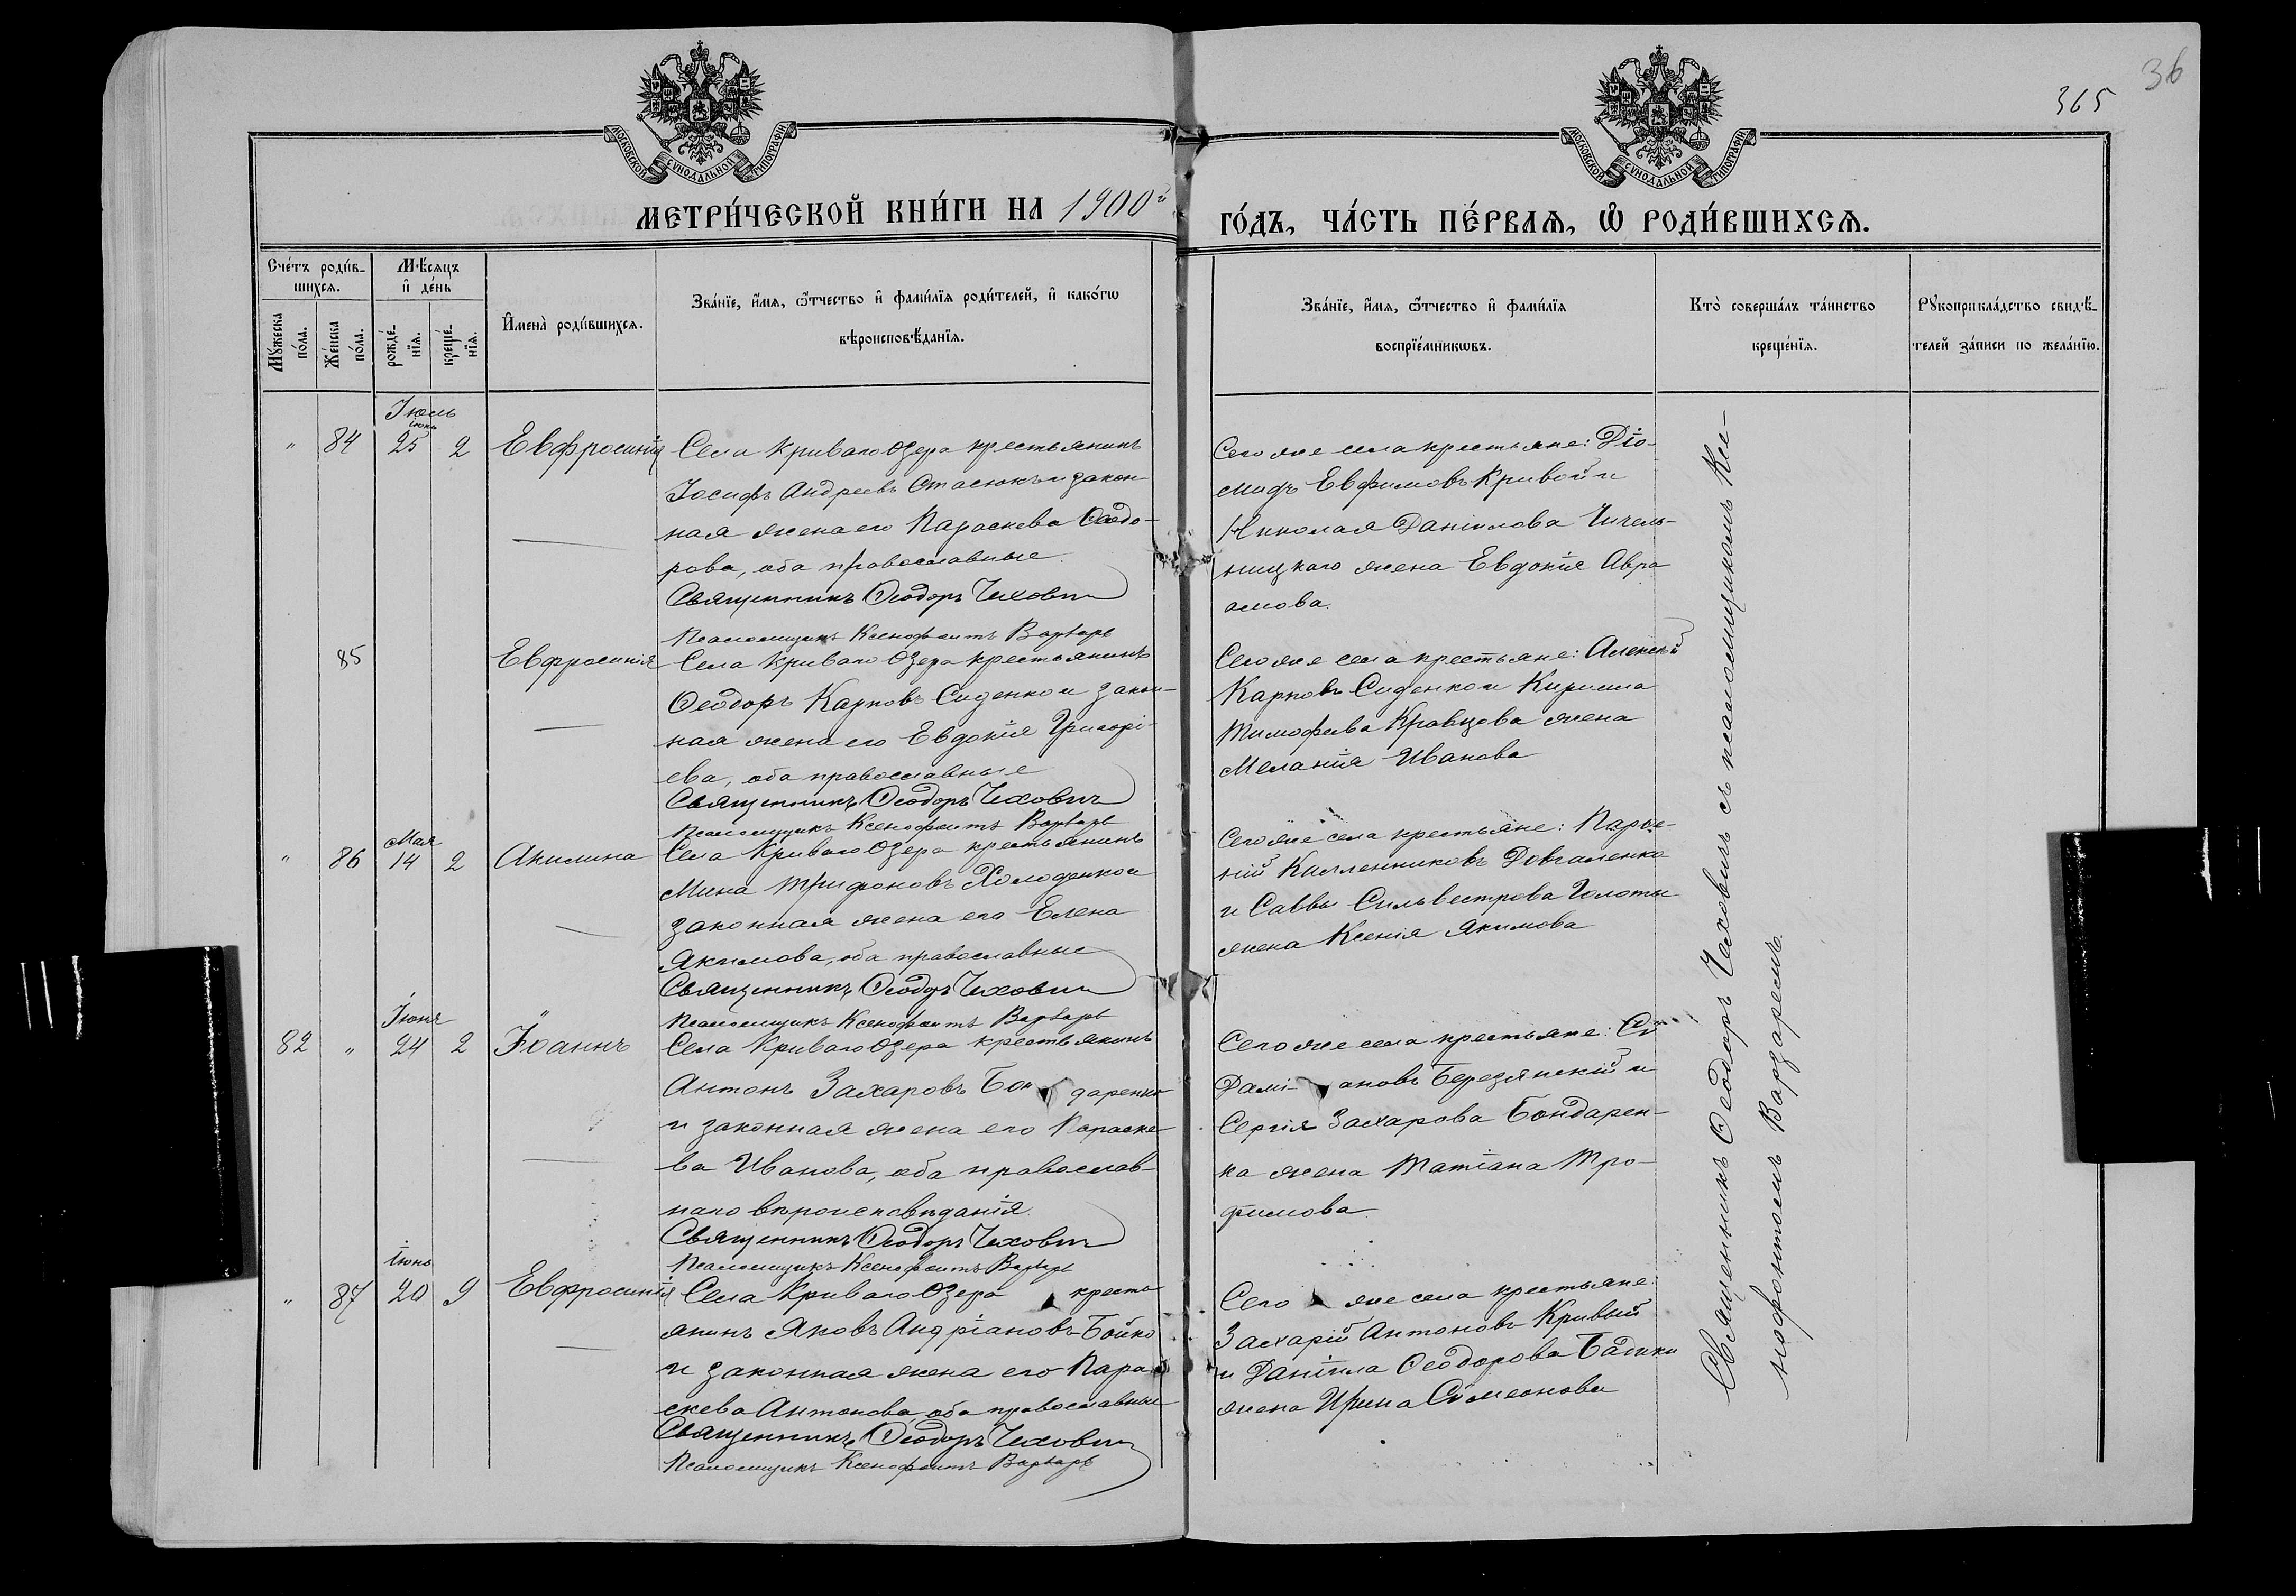 36
365
МОСКОВСКОЙ СУНОДАЛЬНОЙ ТИПОГРАФІИ
МОСКОВСКОЙ СУНОДАЛЬНОЙ ТИПОГРАФІИ
МЕТРИ́ЧЕСКОЙ КНИ́ГИ НА 1900й
ГО́ДЪ, ЧА́СТЬ ПЕ́РВАѦ, Ѡ҆ РОДИ́ВШИХСѦ.
Сче́тъ роди́в-
шихсѧ.
Мꙋ́жеска по́ла.
Же́нска по́ла.
Мѣ́сяцъ
и҆ де́нь
рожде́-
нїѧ.
креще́-
нїѧ.
И҆мена̀ роди́вшихсѧ.
Зва́нїе, и҆́мѧ, ѻ҆́тчество и҆ фами́лїѧ роди́телей, и҆ како́гѡ
вѣроисповѣ́данїѧ.
Зва́нїе, и҆́мѧ, ѻ҆́тчество и҆ фами́лїѧ
воспрїе́мникѡвъ.
Кто̀ соверша́лъ та́инство
креще́нїѧ.
Рꙋкоприкла́дство свидѣ́-
телей за́писи по жела́нїю.
Іюль
іюнь
" 84 25 2 Евфросинія
Села Криваго Озера крестьянинъ
Іосифъ Андреевъ Стасюкъ и закон-
ная жена его Параскева Ѳеодо-
рова, оба православные
Священникъ Ѳеодоръ Чехович
Псаломщикъ Ксенофонтъ Варзарь
Сего же села крестьяне: Діо-
мидъ Евфимовъ Кривой и
Николая Даніилова Чичель-
ницкаго жена Евдокія Авра
амова.
85 Евфросинія
Села Криваго Озера крестьянинъ
Ѳеодоръ Карповъ Сиденко и закон-
ная жена его Евдокія Григорі-
ева, оба православные
Священникъ Ѳеодоръ Чехович
Псаломщикъ Ксенофонтъ Варзарь
Сего же села крестьяне: Алексѣй
Карповъ Сиденко и Кирилла
Тимофеева Кравцова жена
Меланія Иванова
Мая
" 86 14 2 Акилина
Села Криваго Озера крестьянинъ
Мина Трифоновъ Холоденко и
законная жена его Елена
Якимова, оба православные
Священникъ Ѳеодоръ Чехович
Псаломщикъ Ксенофонтъ Варзарь
Сего же села крестьяне: Парѳе-
ній Довгаленко
и Саввы Сильвестрова Голоты
жена Ксенія Якимова
Іюня
82 " 24 2 Іоаннъ
Села Криваго Озера крестьянинъ
Антонъ Захаровъ Бондаренко
и законная жена его Параске-
ва Иванова, оба православ-
наго вѣроисповѣданія.
Священникъ Ѳеодоръ Чехович
Псаломщикъ Ксенофонтъ Варзарь
Сего же села крестьяне:
Дамі-ановъ Березянскій и
Сергія Захарова Бондарен-
ка жена Татіана Тро-
фимова.
іюнь
" 87 20 9 Евфросинія
Села Криваго Озера кресть
янинъ Яковъ Андріановъ Бойко
и законная жена его Пара
скева Антонова, оба православные
Священникъ Ѳеодоръ Чехович
Псаломщикъ Ксенофонтъ Варзарь
Сего же села крестьяне:
Захарій Антоновъ Кривый
и Даніила Ѳеодорова
жена Ирина Сѵмеонова
Священникъ Ѳеодоръ Чеховичъ съ псаломщикомъ Ксе-
нофонтомъ Варзаремъ.